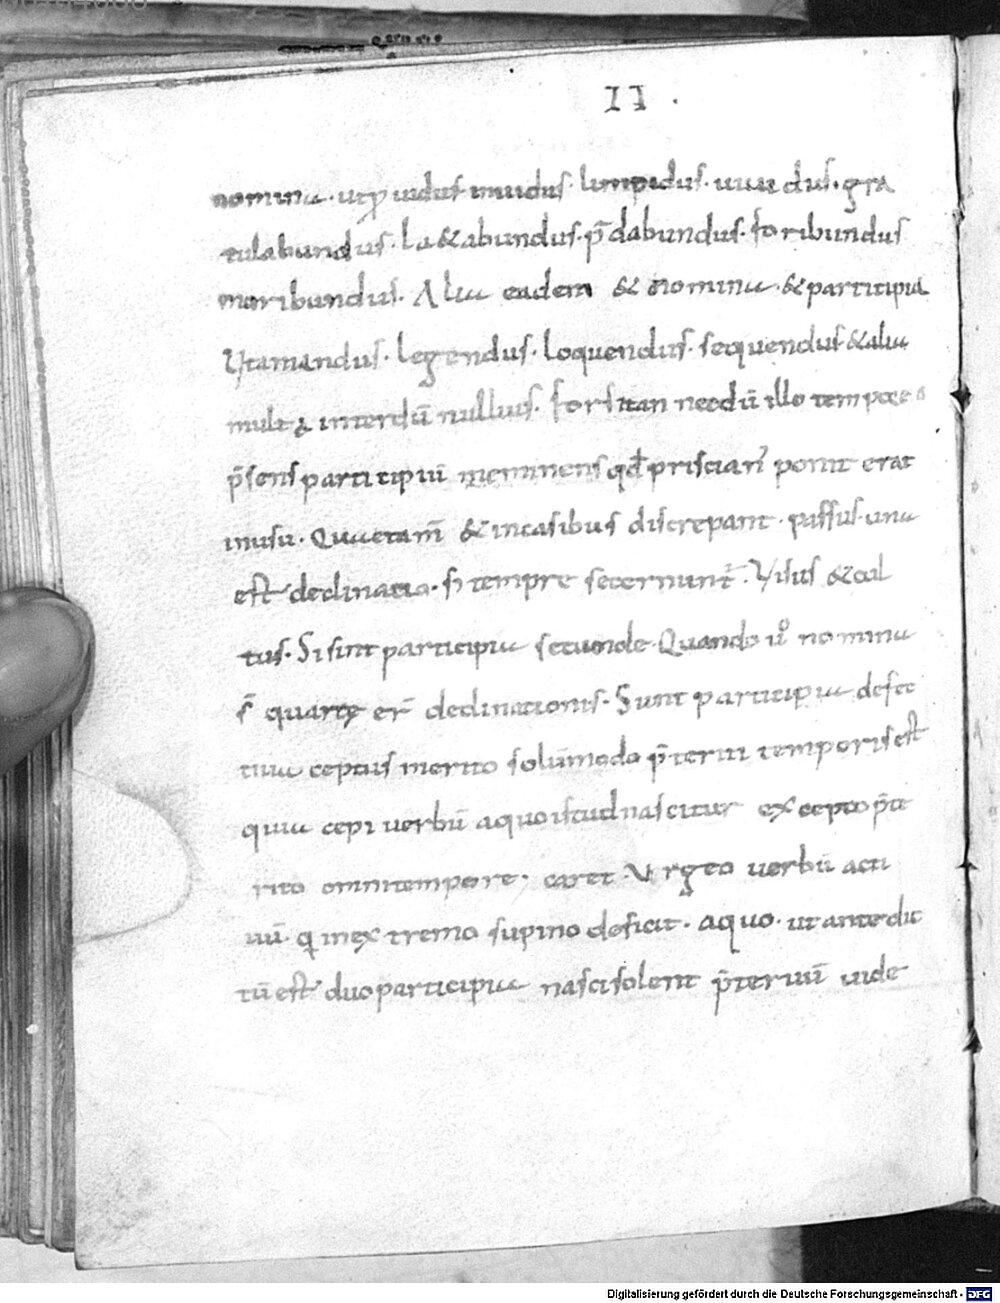 II.
nomina. ut p̱ uidus inuidus. limpidus. uiuidus. gra
tulabundus. l&abundus. p̄dabundus. foribundus
moribundus. Alia eadem & nomina. & participia
Utamandus. legendus. loquendus. sequendus &alia
multa interdū nullius. forsitan necdū illo tempore
p̄sens participiū meminens qd̄ priscian̄ ponit erat
inusu. Quaetam̄ & incasibus discrepant. passus una
est declinatio. si tempre secernunt̄. Visus &cul
tus. Si sint participia secunde. Quando ū nomina
s̄ quarte er̄ declinationis. Sunt participia defec
tiua ceptus merito solūmodo p̄teriti temporis est
quia cepi uerbū aquo istud nascitur excepto p̄te
rito omnitempore. caret. Urgeo uerbū acti
uū. q inextremo supino deficit. aquo. ut antedic
tū est duo participia nasci solent p̄teritū uide
Digitalisierung gefördert durch die Deutsche Forschungsgemeinschaft - DFG